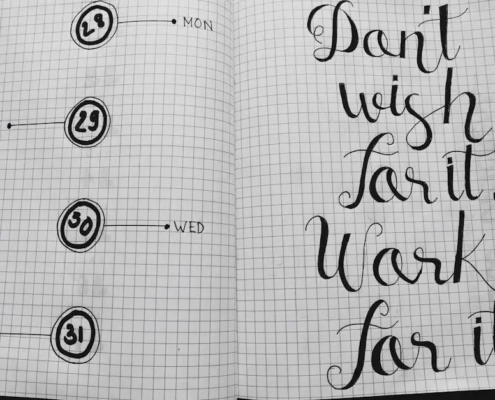 28 MON
29
30 WED
31
Don't
wish
for it.
Work
for it